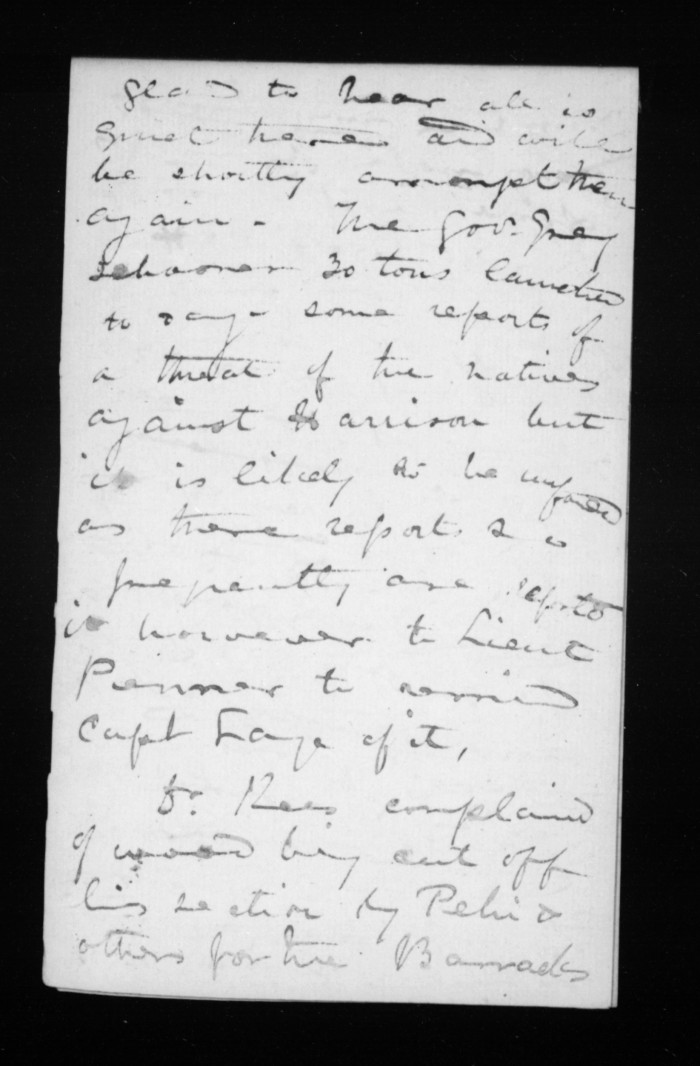 glad to hear all is
quiet here and will
be shortly amongst them
again - The Gov. Grey
schooner 30 tons launched
to day - some reports of
a threat of the natives
against Harrison but
it is likely to be unfounded
as these reports so
frequently are reported
it however to Lieut
Penner to remind
Capt Laye of it,
Dr. Rees complained
of wood being cut off
his section by Pehi &
others for the Barracks